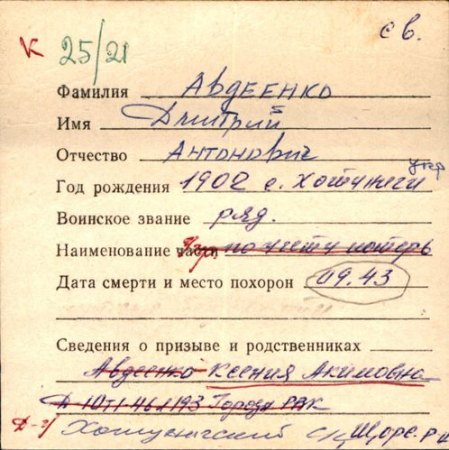 к 25/21 св.
Фамилия АВДЕЕНКО
Имя Дмитрий
Отчество Антонович
укр
Год рождения 1902 с. Хотуничи
Воинское звание ряд.
Наименование части по учету потерь
Дата смерти и место похорон 09.43
Сведения о призыве и родственниках
Авдеенко Ксения Акимовна
Городн РВК
Хотуничский с/с Щорс. р-н